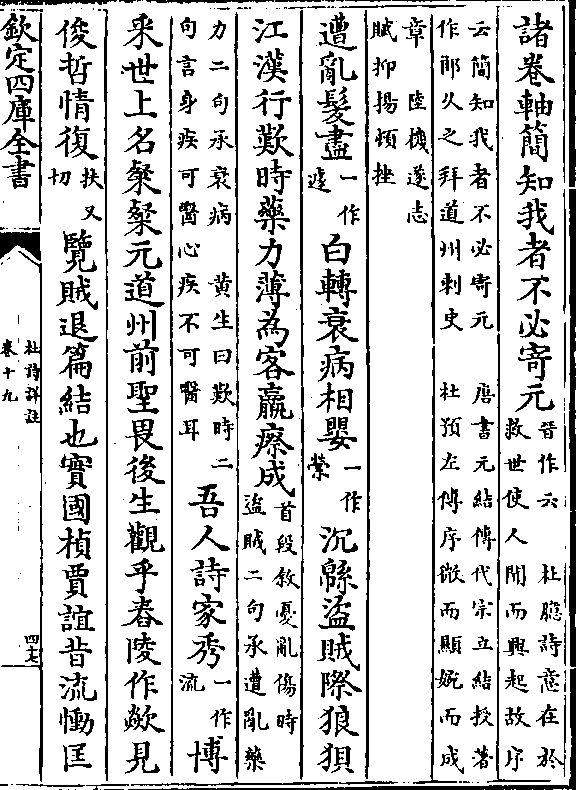 諸卷軸簡知我者不必寄元 晉作云 杜臆詩意在於救世使人聞而興起故序
云簡知我者不必寄元 唐書元結傳代宗立結授著作郎久之拜道州刺史 杜預左傳序微而顯婉而成
章 陸機遂志賦抑揚頓挫
遭亂髮盡 一作遽 白轉衰病相嬰 一作縈 沉綿盜賊際狼狽
江漢行歎時藥力薄為客羸瘵成 首段敘憂亂傷時盜賊二句承遭亂藥
力二句承衰病 黄生曰歎時二句言身疾可醫心疾不可醫耳 吾人詩家秀 一作流 博
采世上名粲粲元道州前聖畏後生觀乎舂陵作歘見
俊哲情復 扶又切 覽賊退篇結也實國楨賈誼昔流慟匡
欽定四庫全書
杜詩詳註
卷十九
四七